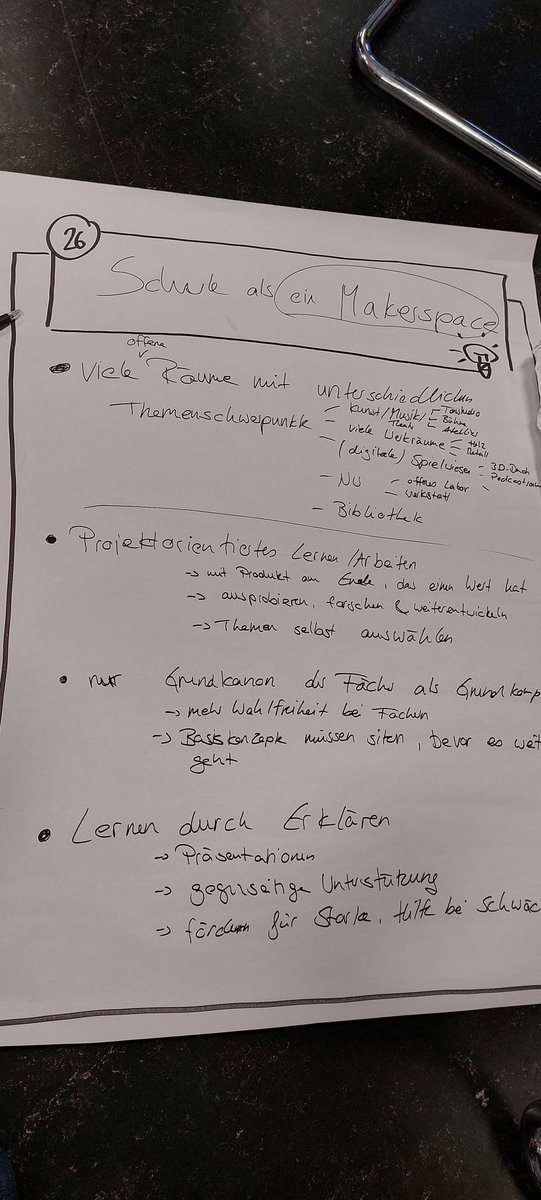 26
Schule als ein Makersspace
offene
• Viele Räume mit unterschiedlichen
Themenschwerpunkte
- Kunst/Musik/Theater
- Tonstudio
- Bühne
- Ateliers
- viele Werkräume
- Holz
- Metall
- (digitale) Spielwiesen - 3D-Druck
- Podcastraum
- NW - offenes Labor
- Werkstatt
- Bibliothek
• Projektorientiertes Lernen/Arbeiten
-> mit Produkt am Ende, das einen Wert hat
-> ausprobieren, forschen & weiterentwickeln
-> Themen selbst auswählen
• nur Grundkanon der Fächer als Grundkomp
-> mehr Wahlfreiheit bei Fächern
-> Basiskonzepte müssen sitzen, bevor es weit
geht
• Lernen durch Erklären
-> Präsentationen
-> gegenseitige Unterstützung
-> fördern für Starke, Hilfe bei Schwäc